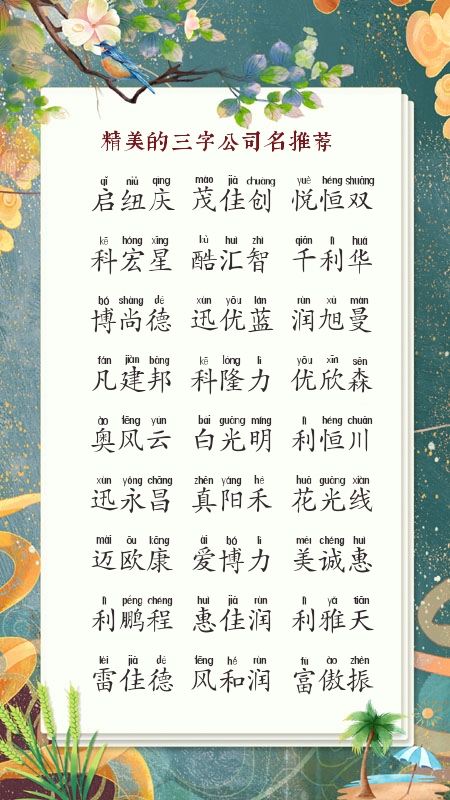 精美的三字公司名推荐
qǐ niǔ qìng mào jiā chuàng yuè héng shuāng
启纽庆 茂佳创 悦恒双
kē hóng xīng kù huì zhì qiān lì huá
科宏星 酷汇智 千利华
bó shàng dé xùn yōu lán rùn xù màn
博尚德 迅优蓝 润旭曼
fán jiàn bāng kē lóng lì yōu xīn sēn
凡建邦 科隆力 优欣森
ào fēng yún bái guāng míng lì héng chuān
奥风云 白光明 利恒川
xùn yǒng chāng zhēn yáng hé huā guāng xiàn
迅永昌 真阳禾 花光线
mài ōu kāng ài bó lì měi chéng huì
迈欧康 爱博力 美诚惠
lì péng chéng huì jiā rùn lì yǎ tiān
利鹏程 惠佳润 利雅天
léi jiā dé fēng hé rùn fù ào zhèn
雷佳德 风和润 富傲振